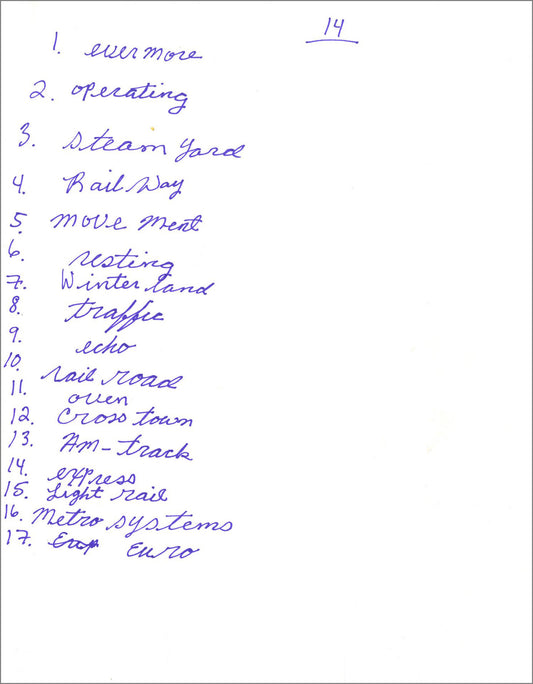 14
1. evermore
2. operating
3. Steam yard
4. Rail Way
5. move ment
6. resting
7. Winter land
8. traffic
9. echo
10. rail road
11. oven
12. Cross town
13. Am-track
14. express
15. Light rail
16. Metro systems
17. Euro